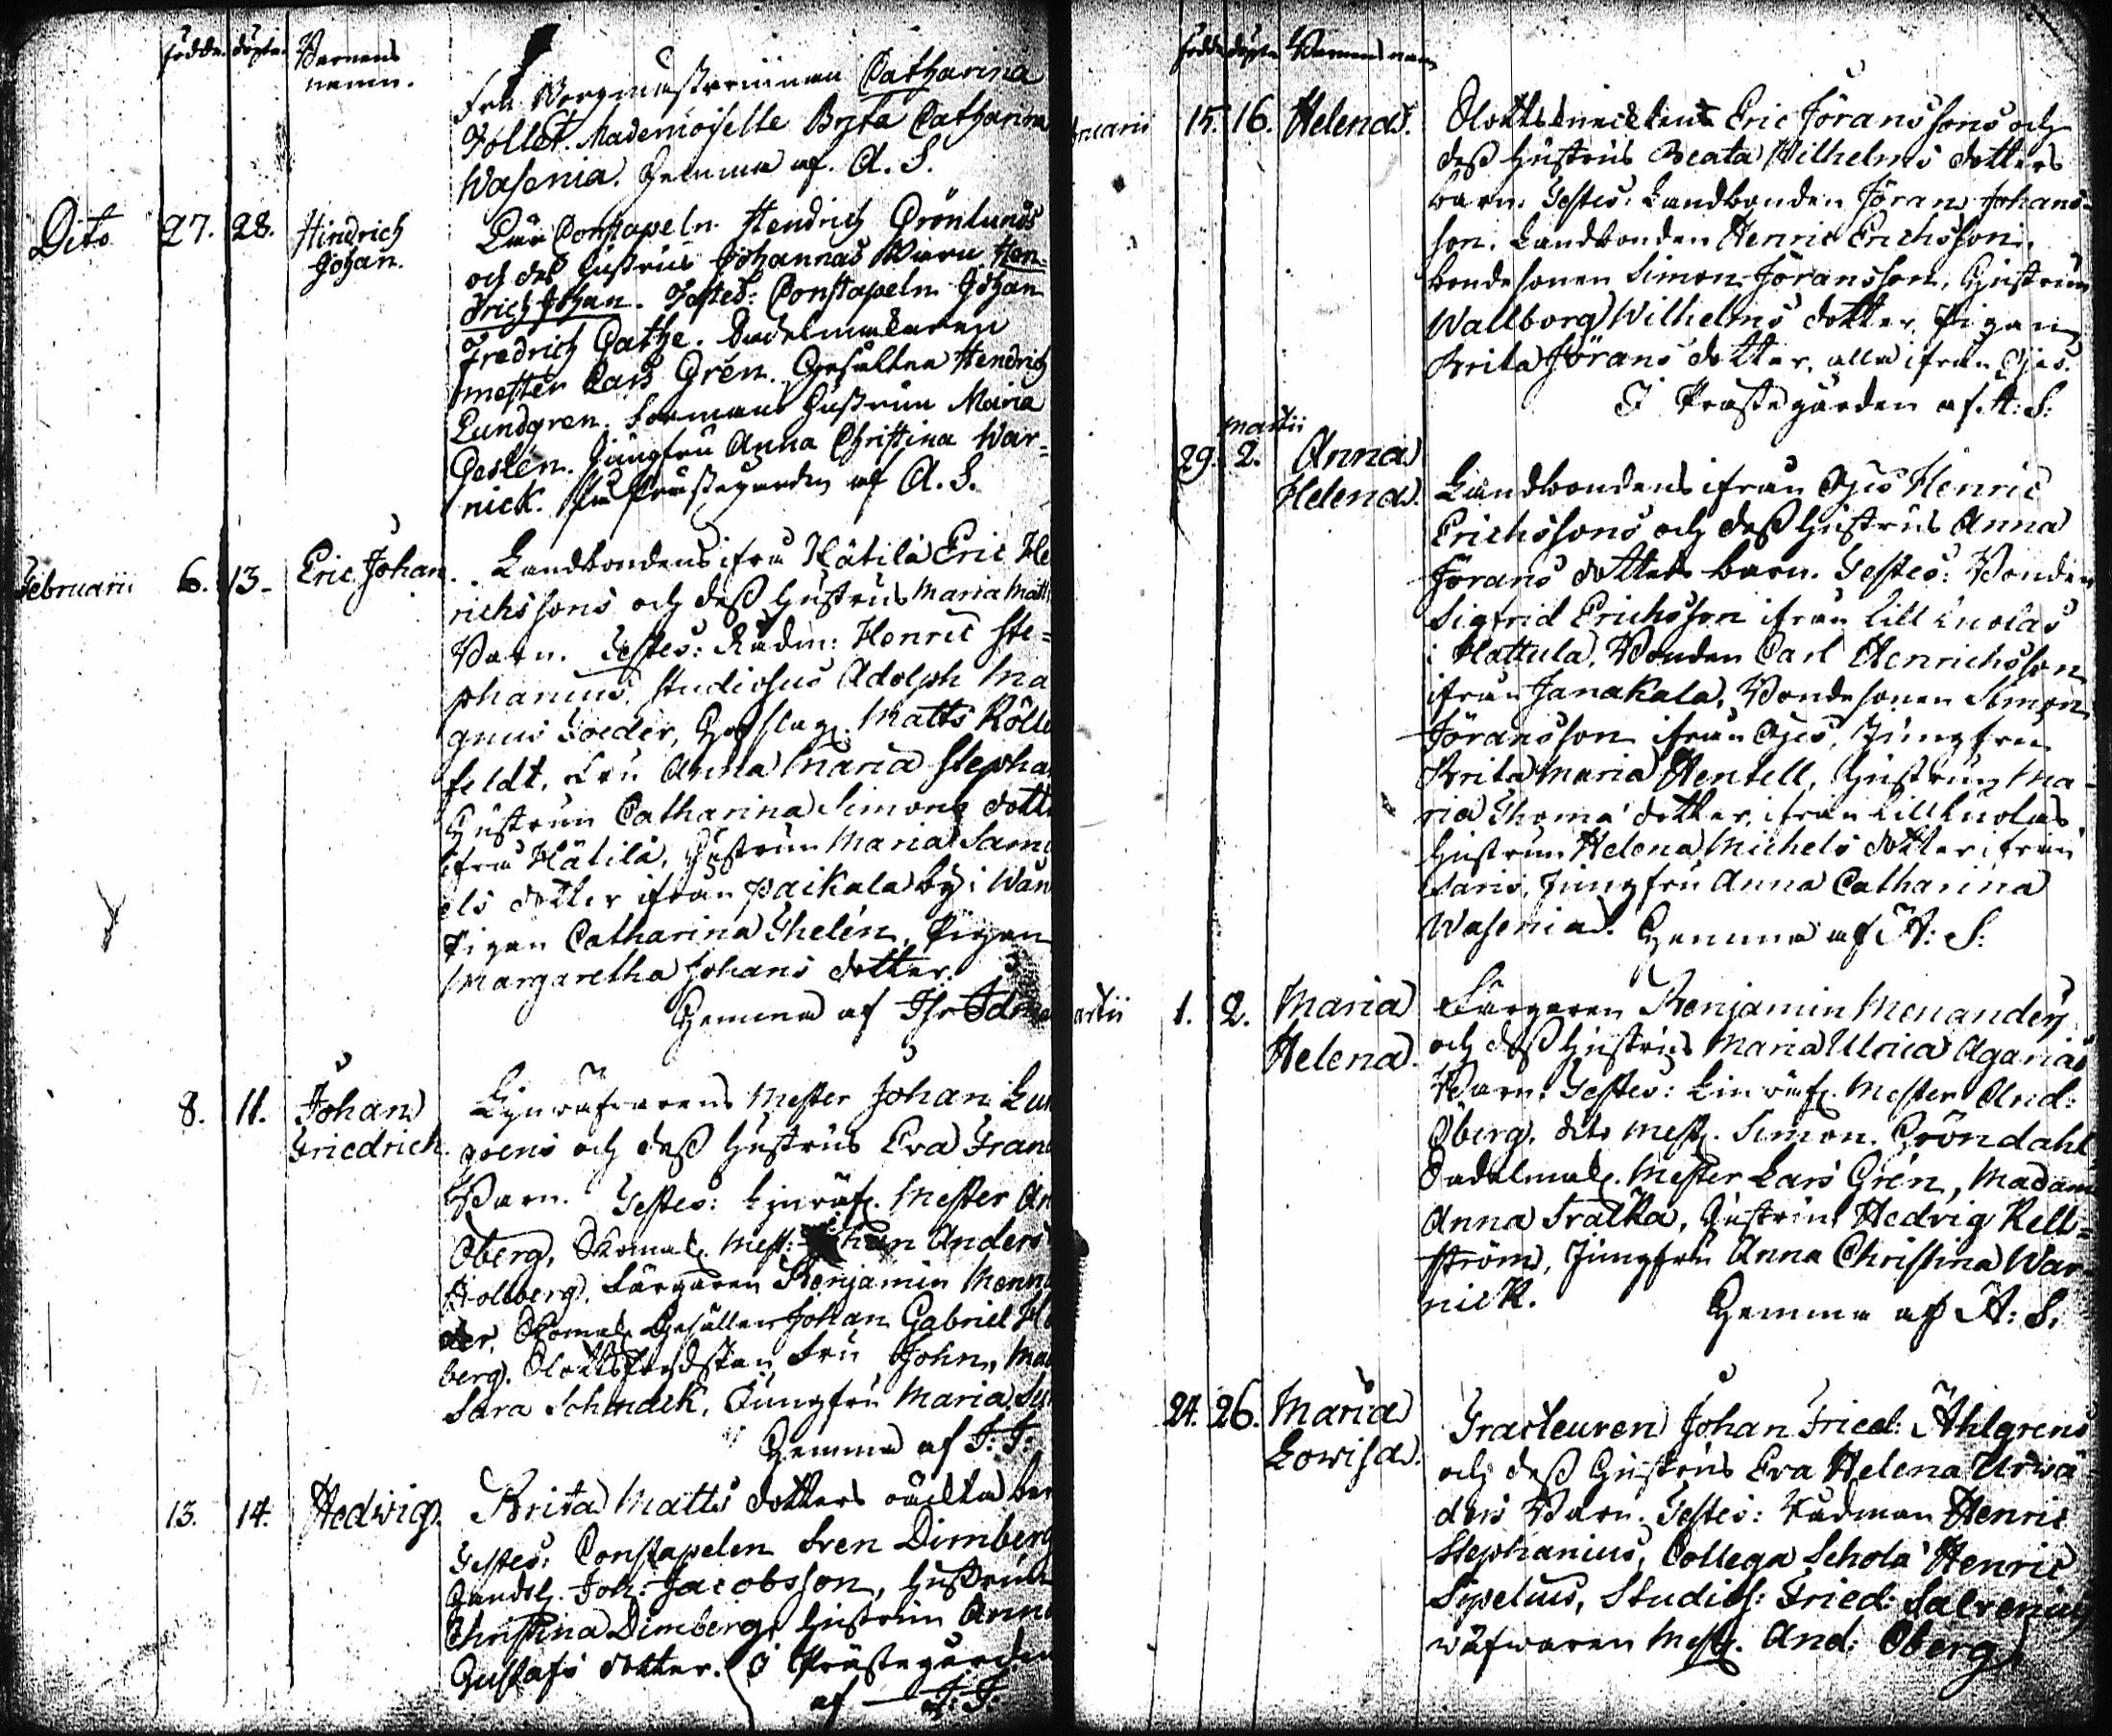 födde döpte Barnens
namn.
Fru Borgmästarinnan Catharina
Follet. Mademoiselle Bryta Catharina
Wasenia. Hemma af A. S.
Dito 27. 28. Hindrich
Johan.
Constapeln Hendrich Grönlunds
och des hustrus Johannas Barn Hen-
drich Johan. Testes: Constapeln Johan
Fredrich Gathe. Sadelmakaren
mester Lars Grén. Gesällen Hendrich
Lundgren. hustrun Maria
Geslén. Jungfru Anna Christina War-
nick. Prästegården af A. S.
Februarii 6. 13. Eric Johan.
Landbondens ifrån Hätilä Eric He
richssons och dess hustrus Maria Matts
Barn. Testes: Rådm: Henric Ste-
phanius, Studiosus Adolph Ma
gnus Toeder, Hofslag. Matts Rölle
feldt, Fru Anna Maria Stepha
Hustrun Catharina Simons dott
ifrån Hätilä, Hustrun Maria Samu
els dotter ifrån Paikala by i Wån
Pigan Catharina Thelén, Pigan
Margaretha Johans dotter.
Hemma af
8. 11. Johan
Friedrich.
Linwäfwarens Mester Johan Lun
grens och dess hustrus Eva Fran
Barn. Testes: Linwäf. Mester An
Öberg, Skomak. Mest: Johan Anders
Holberg, Färgaren Benjamin Menan
der, Skomak. Gesällen Johan Gabriel H
berg, Fru John, Ma
Sara Schmdek, Jungfru Maria
Hemma af J: J:
13. 14. Hedwig.
Brita Matts dotters oächta bar
Testes: Constapelen Sven Dimberg
Handsk. Joh: Jacobsson, Hustrun
Christina Dimberg, Hustrun Anna
Gustafs dotter. I Prästegården
af J: J:
födde döpte Barnens namn
15. 16. Helena.
Slottsknecktens Eric Jöranssons och
dess hustrus Beata Wilhelms dotters
barn. Testes: Landbonden Jöran Johans-
son. Landbonden Henric Erichsson,
bondesonen Simon Jöransson, Hustrun
Wallborg Wilhelms dotter, Pigan
Brita Jörans dotter, alla ifrån Ojois.
I Prästegården af A: S:
Martii
29. 2. Anna
Helena.
Landbondens ifrån Ojois Henric
Erichssons och dess hustrus Anna
Jörans dotters barn. Testes: Bonden
Sigfrid Erichsson ifrån Lill Luolas
i Hattula, Bonden Carl Henrichsson
ifrån Janakala, Bondesonen Simon
Jöransson ifrån Ojois, Jungfru
Brita Maria Hentell, Hustrun Ma-
ria Thoma dotter, ifrån Lill Luolas
Hustrun Helena Michels dotter ifrån
Saris, Jungfru Anna Catharina
Wasenia. Hemma af A: S:
1. 2. Maria
Helena.
Färgaren Benjamin Menanders
och dess hustrus Maria Ulrica Agarias
Barn. Testes: Linwäf. Mester And:
Öberg, dito Mest. Simon Gröndahl
Sadelmak. Mester Lars Grén, Madam
Anna Tralka, Hustrun Hedvig Kell-
ström, Jungfru Anna Christina War-
nick. Hemma af A: S.
24. 26. Maria
Lowisa.
Tracteuren Johan Fried: Ahlgrens
och dess Hustrus Eva Helena Urwä-
ders Barn. Testes: Rådman Henric
Stephanius, Collega Schola Henric
Sipelius, Studios: Fried: Salvenius
wäfwaren Mest. And: Öberg